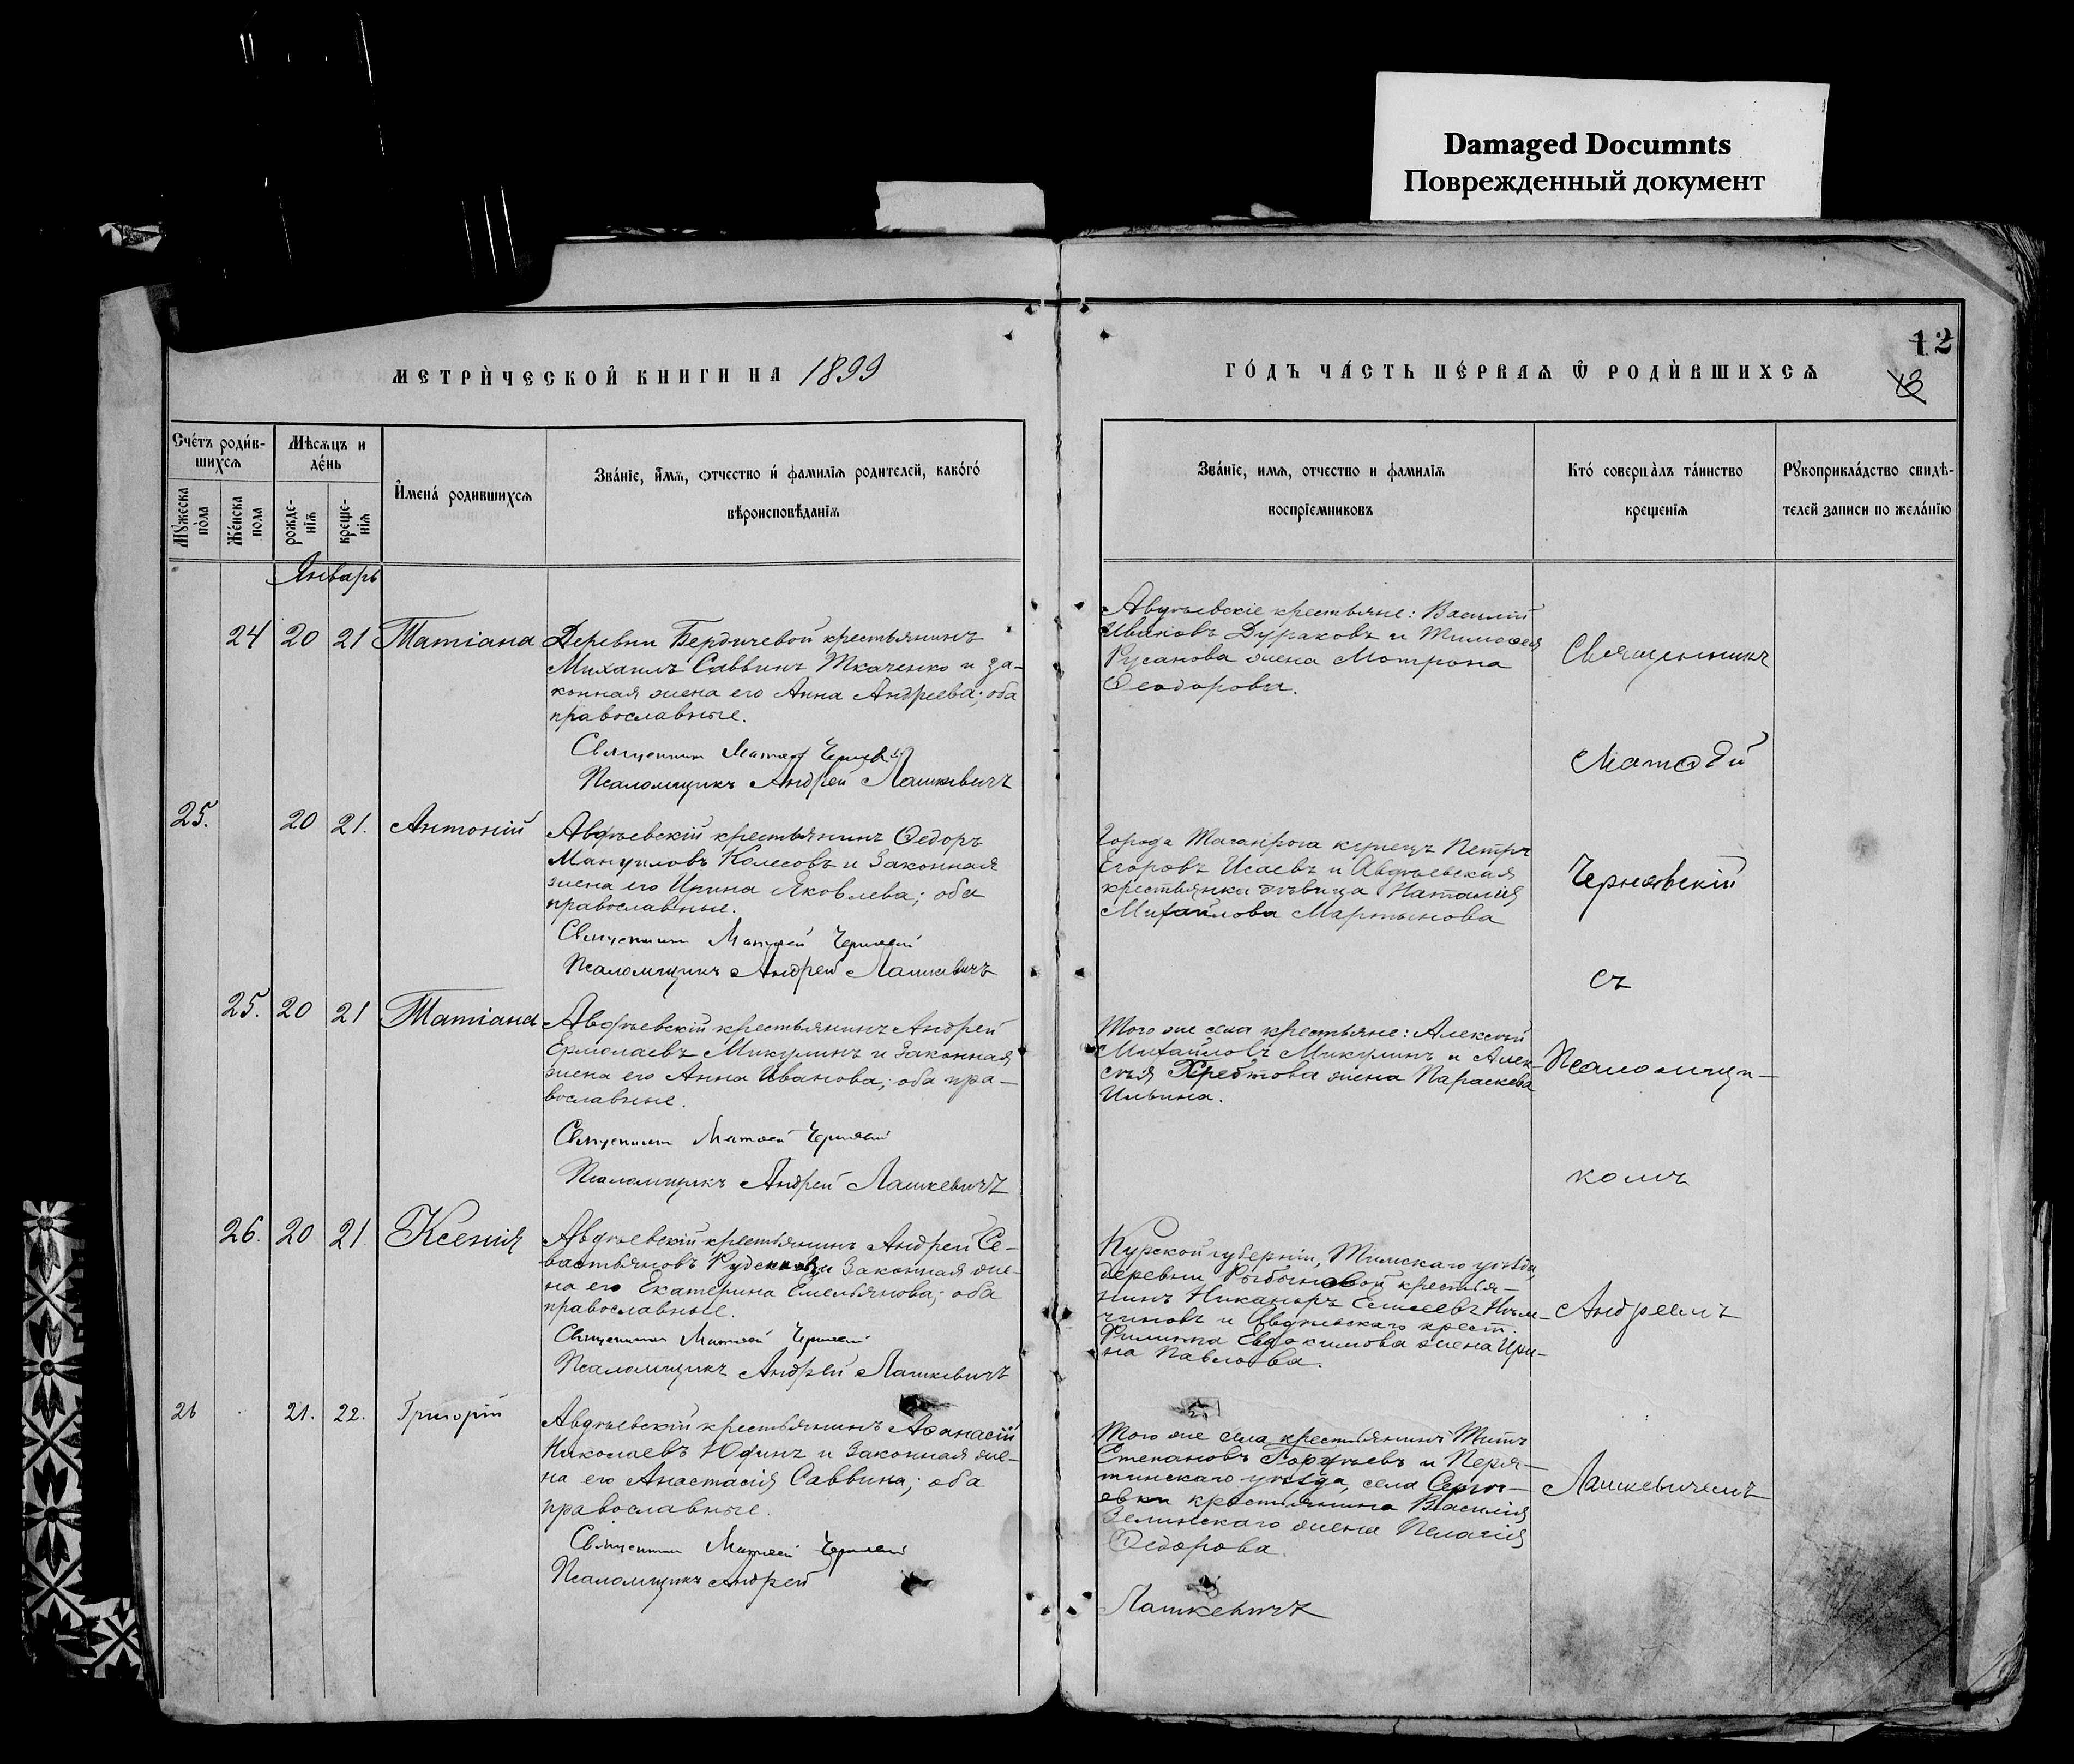 Damaged Documnts
Поврежденный документ
12
МЕТРИЧЕСКОЙ КНИГИ НА 1899
ГОДЪ ЧАСТЬ ПЕРВАЯ Ѿ РОДИВШИХСЯ
Счетъ родив-
шихся
Мѣсяцъ и
день
Имена родившихся
Званіе, имя, отчество и фамилія родителей, какого
вѣроисповѣданія
Мужеска
пола
Женска
пола
рожде-
нія
креще-
нія
Званіе, имя, отчество и фамилія
воспріемниковъ
Кто совершалъ таинство
крещенія
Рукоприкладство свидѣ-
телей записи по желанію
Январь
24 20 21 Татіана
Деревни Бердичевой крестьянинъ
Михаилъ Саввинъ Ткаченко и за-
конная жена его Анна Андреева; оба
православные.
Священникъ Матѳей
Псаломщикъ Андрей Лашкевичъ
Авдѣевскіе крестьяне: Василій
Ивановъ Дураковъ и Тимоѳея
Русанова жена Мотрона
Ѳеодорова.
Священникъ
Матѳей
25. 20 21. Антоній
Авдѣевскій крестьянинъ Ѳедоръ
Мануиловъ Колесовъ и законная
жена его Ирина Яковлева; оба
православные.
Священникъ Матѳей
Псаломщикъ Андрей Лашкевичъ
Города Таганрога купецъ Петръ
Егоровъ Исаевъ и Авдѣевская
крестьянка дѣвица Наталія
Михайлова Мартынова
Чернявскій
съ
25. 20 21 Татіана
Авдѣевскій крестьянинъ Андрей
Ермолаевъ Микулинъ и законная
жена его Анна Иванова; оба пра-
вославные.
Священникъ Матѳей
Псаломщикъ Андрей Лашкевичъ
Того же села крестьяне: Алексѣй
Михайловъ Микулинъ и Алек-
сѣя Хребтова жена Параскева
Ильина.
Псаломщи-
комъ
26. 20 21. Ксенія
Авдѣевскій крестьянинъ Андрей Се-
вастьяновъ и законная же-
на его Екатерина Емельянова; оба
православные.
Священникъ Матѳей
Псаломщикъ Андрей Лашкевичъ
Курской губерніи, Тимскаго уѣзда,
деревни крестья-
нинъ Никаноръ Елисеевъ
и Авдѣевскаго крест.
Филиппа Евдокимова жена Ири-
на Павлова.
Андреемъ
26 21. 22. Григорій
Авдѣевскій крестьянинъ Аѳанасій
Николаевъ Юдинъ и законная же-
на его Анастасія Саввина; оба
православные.
Священникъ Матѳей
Псаломщикъ Андрей
Того же села крестьянинъ Титъ
Степановъ Гордѣевъ и Перя-
тинскаго уѣзда, села Сергѣ-
евки крестьянина Василія
Зелинскаго жена Пелагія
Ѳедорова.
Лашкевичъ
Лашкевичемъ